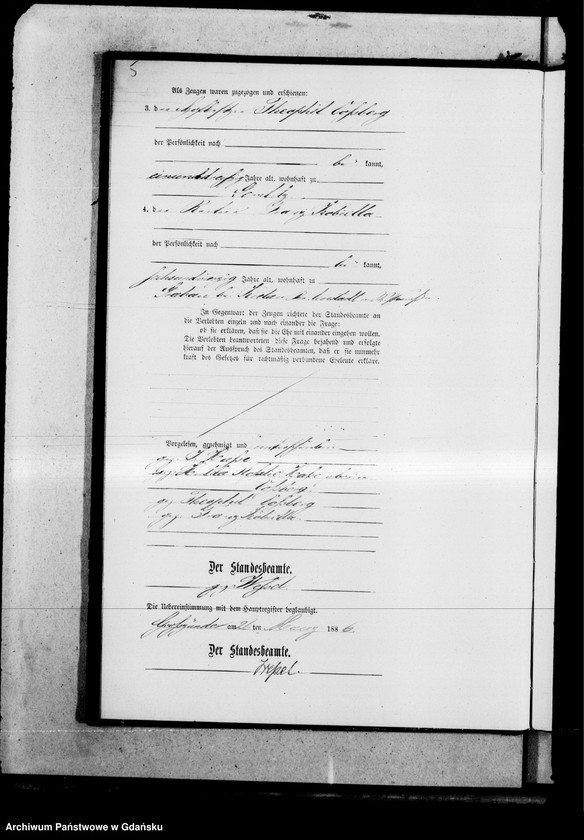 5
Als Zeugen waren zugezogen und erschienen:
3. der Theophil Colberg
der Persönlichkeit nach
be kannt,
einunddreißig Jahre alt, wohnhaft zu
4. der Franz Kobiella
der Persönlichkeit nach
be kannt,
sechsundvierzig Jahre alt, wohnhaft zu
bei
In Gegenwart der Zeugen richtete der Standesbeamte an
die Verlobten einzeln und nach einander die Frage:
ob sie erklären, daß sie die Ehe mit einander eingehen wollen.
Die Verlobten beantworteten diese Frage bejahend und erfolgte
hierauf der Ausspruch des Standesbeamten, daß er sie nunmehr
kraft des Gesetzes für rechtmäßig verbundene Eheleute erkläre.
Vorgelesen, genehmigt und unterschrieben
gez.
gez.
Colberg
gez. Theophil Colberg
gez. Franz Kobiella
Der Standesbeamte.
gez. Wessel
Die Uebereinstimmung mit dem Hauptregister beglaubigt.
am ten März 1886.
Der Standesbeamte.
Wessel
Archiwum Państwowe w Gdańsku